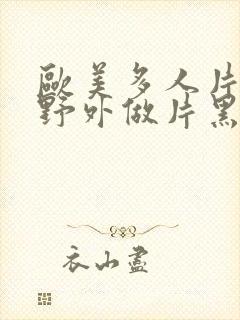 歐美多人片
野外做片黑
衣山盡